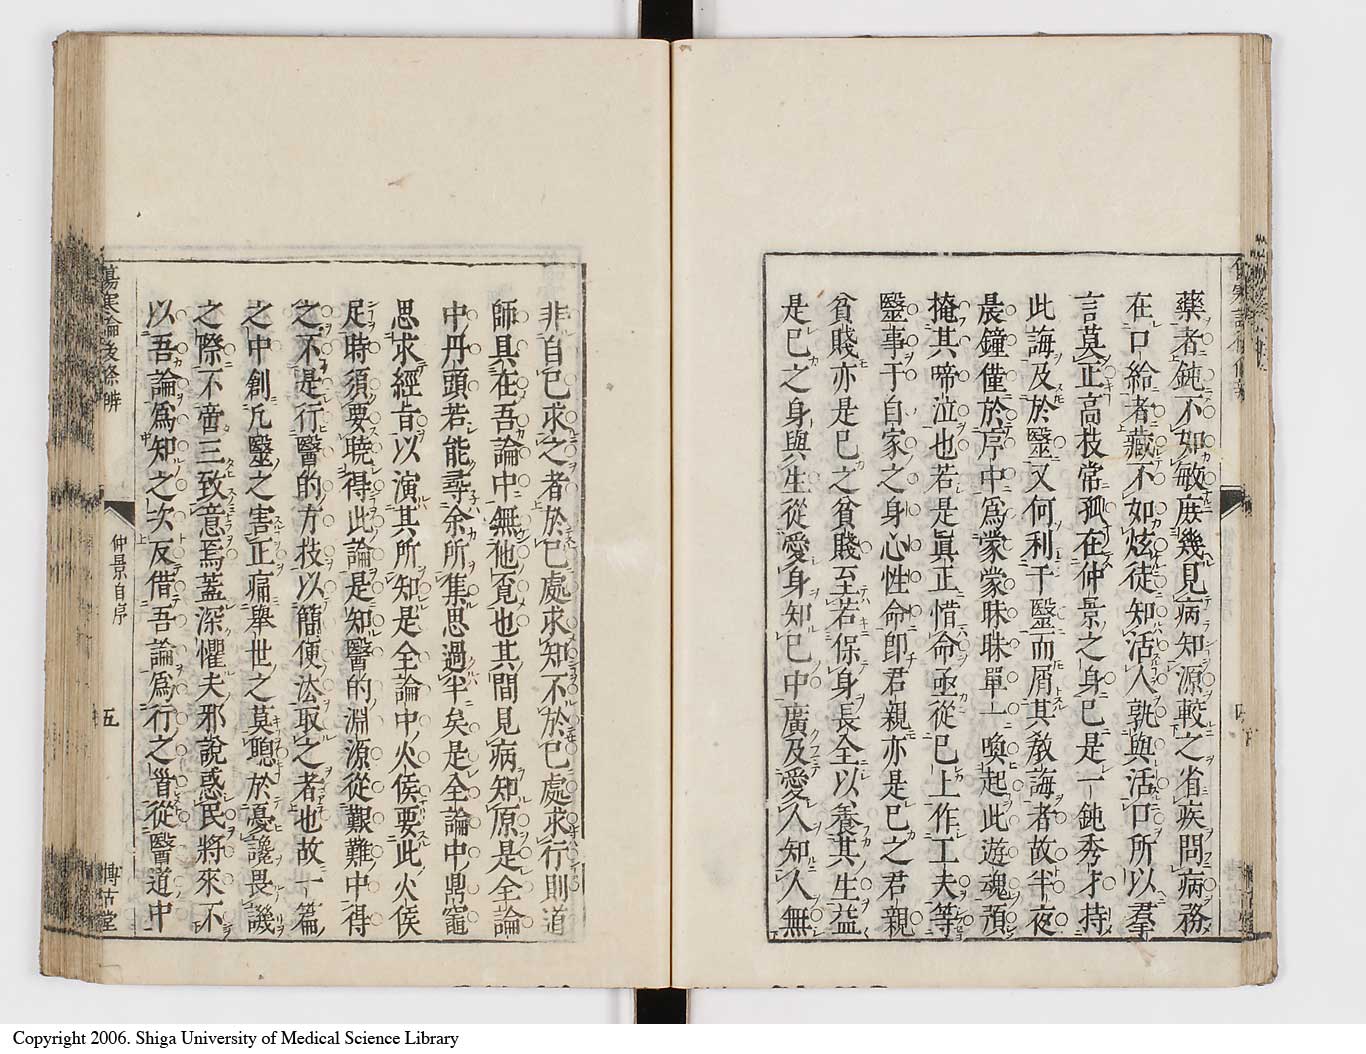 藥者鈍不如敏庶幾見病知源較之省疾問病務
在口給者藏不如炫徒知活人孰與活口所以羣
言莫正高枝常孤在仲景之身已是一鈍秀才持
此誨及於毉又何利于毉而屑其敎誨者故半夜
晨鐘僅於序中爲蒙蒙昧昧單一喚起此遊魂預
掩其啼泣也若是眞正惜命亟從已上作工夫等
毉事于自家之身心性命即君親亦是已之君親
貧賤亦是已之貧賤至若保身長全以養其生益
是已之身與生從愛身知已中廣及愛人知人無
非自已求之者於已處求知不於已處求行則道
師具在吾論中無他覔也其間見病知原是全論
中丹頭若能尋余所集思過半矣是全論中鼎竈
思求經旨以演其所知是全論中火候要此火候
足時須要曉得此論是知醫的淵源從艱難中得
之不是行醫的方技以簡便法取之者也故一篇
之中創凢毉之害正痛舉世之莫聰於憂讒畏譏
之際不啻三致意焉蓋深懼夫邪說惑民將來不
以吾論爲知之次反借吾論爲行之首從醫道中
傷寒論後條辨
仲景自序
五
博古堂
Copyright 2006. Shiga University of Medical Science Library